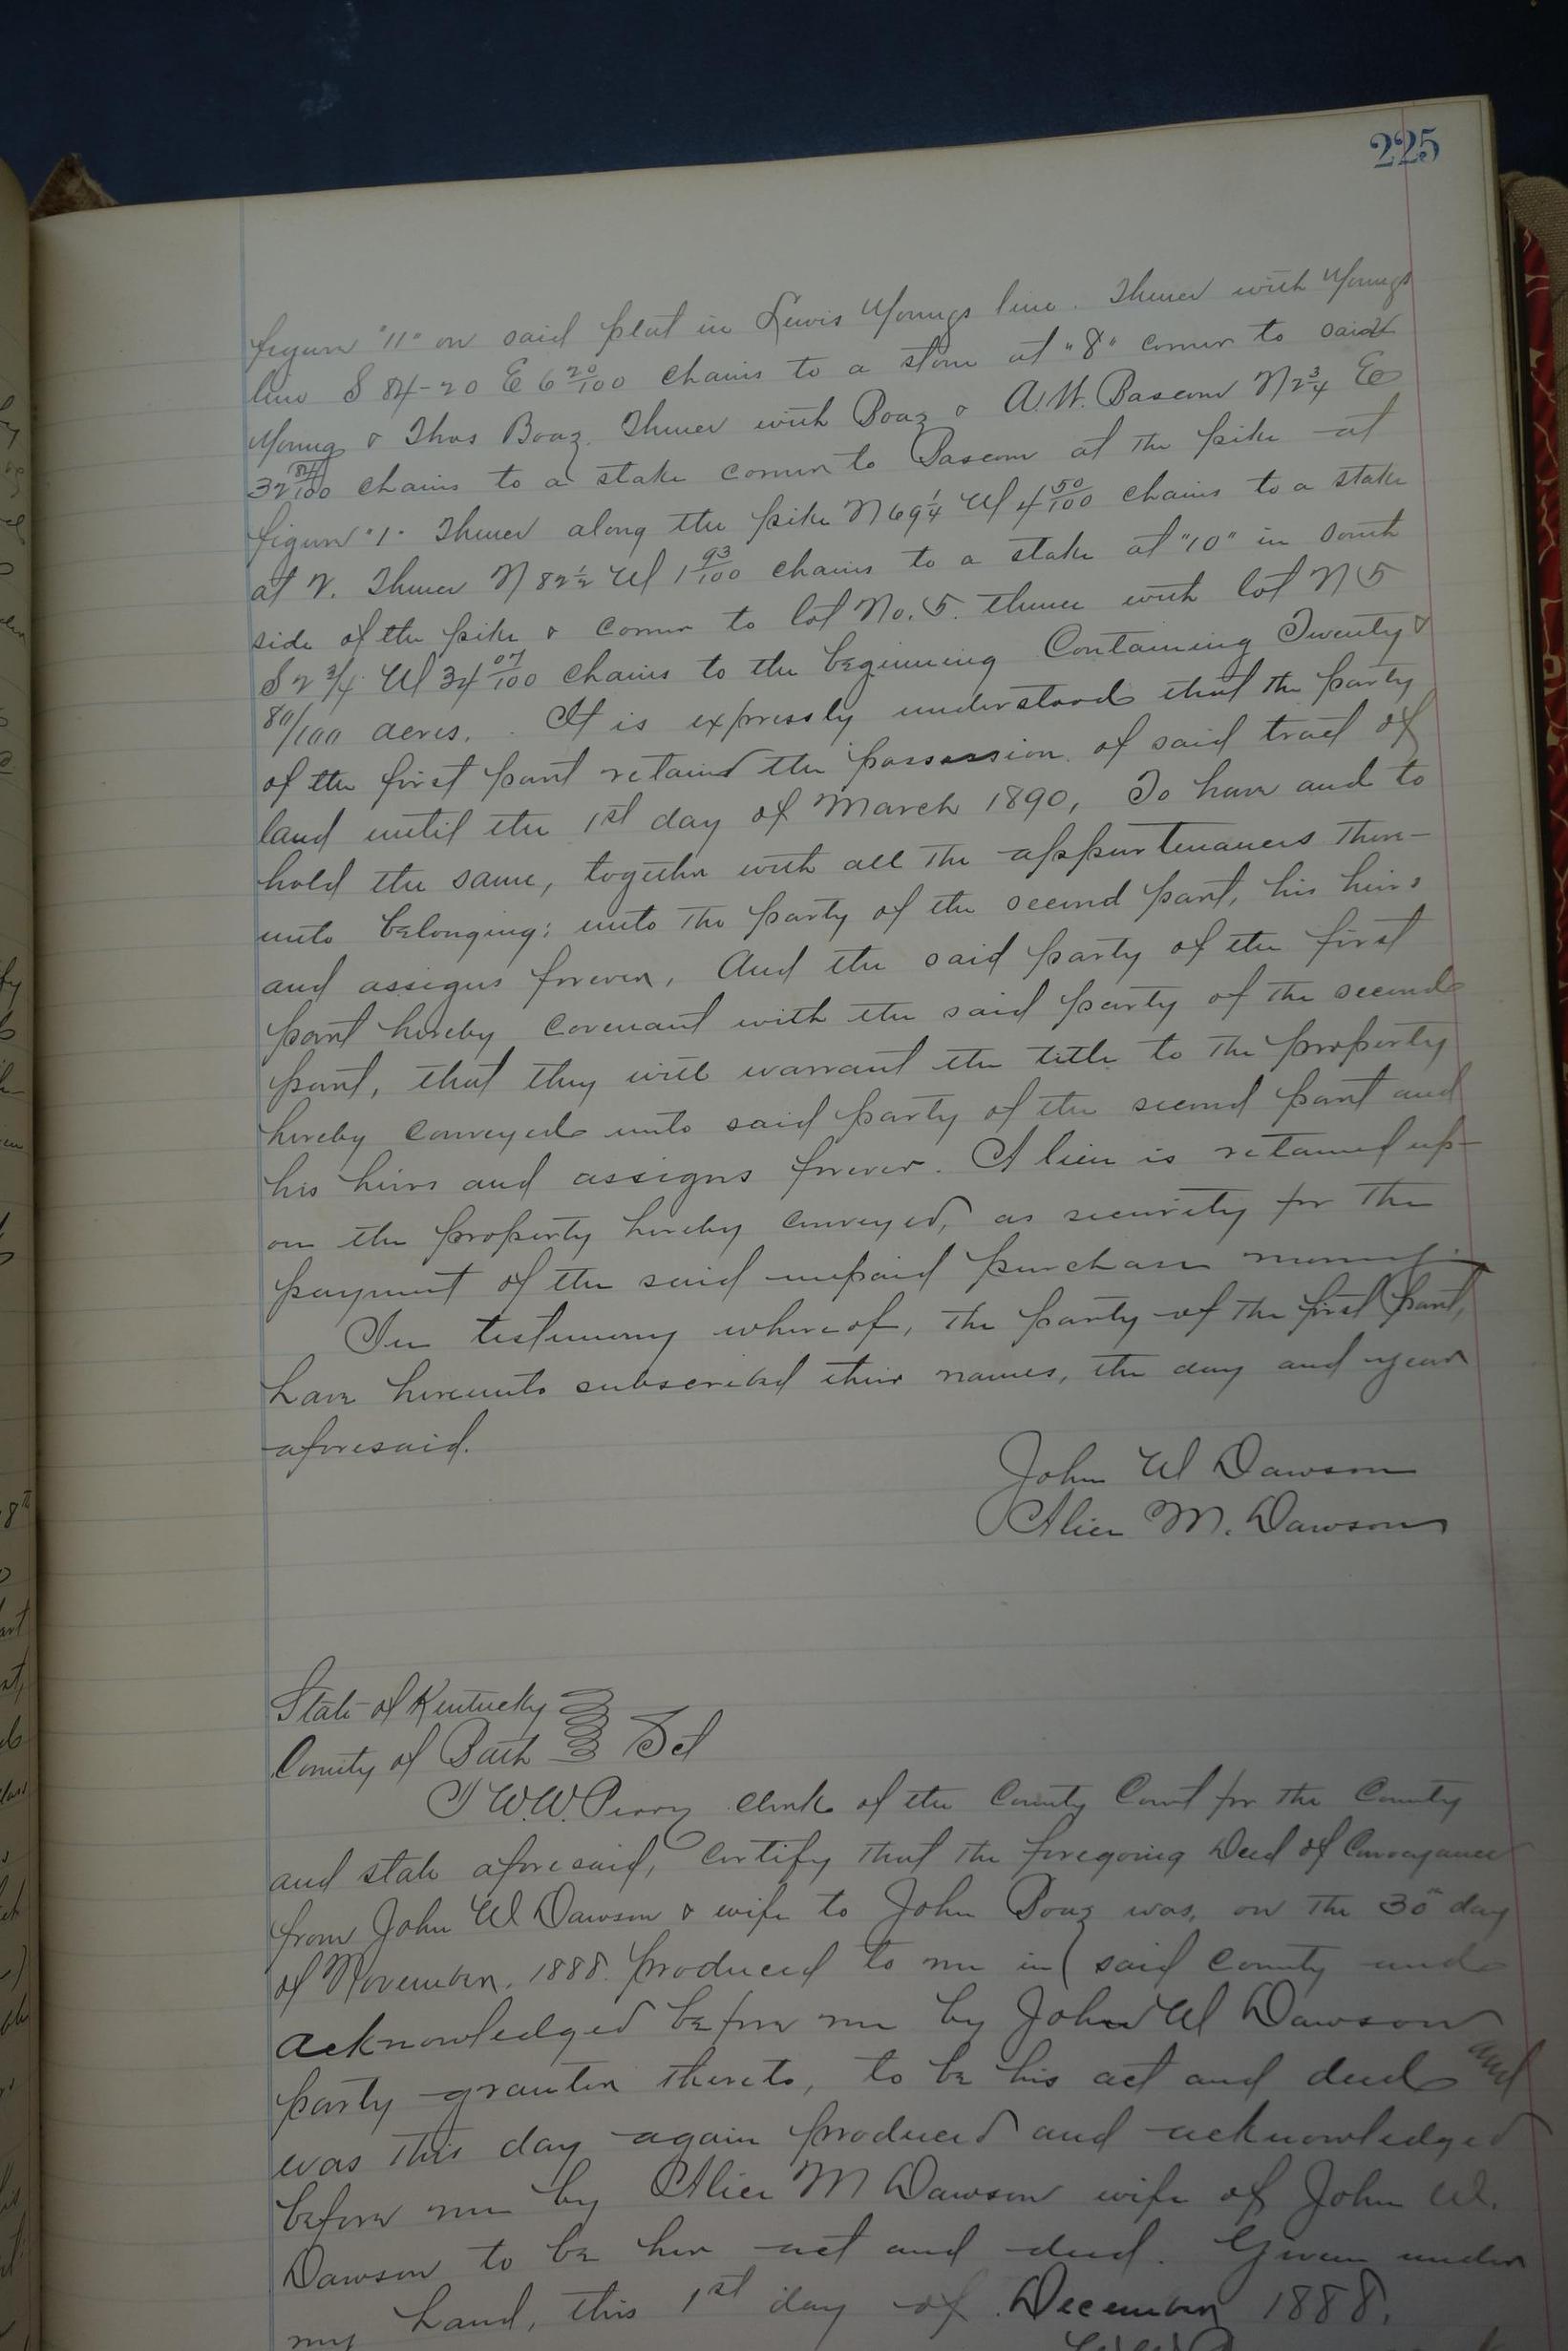 225
figure "11" on said plat in Lewis Youngs line. Thence with Youngs
line S 84-20 E 6 20/100 chains to a stone at "8" corner to said
Young & Thos Boaz. Thence with Boaz & A.W. Bascom N 2 3/4 E
32 84/100 chains to a stake corner to Bascom at the pike at
figure "1" Thence along the pike N 69 1/4 W 4 50/100 chains to a stake
at 2. Thence N 82 1/2 W 1 93/100 chains to a stake at "10" in south
side of the pike & corner to lot No. 5. thence with lot N 5
S 2 3/4 W 34 07/100 chains to the beginning Containing Twenty &
80/100 acres. It is expressly understood that the party
of the first part retains the possession of said tract of
land until the 1st day of March 1890, To have and to
hold the same, together with all the appurtenances there-
unto belonging; unto the party of the second part, his heirs
and assigns forever, And the said party of the first
part hereby covenant with the said party of the second
part, that they will warrant the title to the property
hereby conveyed unto said party of the second part and
his heirs and assigns forever. A lien is retained up-
on the property hereby conveyed, as security for the
payment of the said unpaid purchase money.
In testimony whereof, the party of the first part,
have hereunto subscribed their names, the day and year
aforesaid.
John W Dawson
Alice M. Dawson
State of Kentucky
County of Bath Sct
I W.W. Perry clerk of the County Court for the County
and state aforesaid, certify that the foregoing Deed of Conveyance
from John W Dawson & wife to John Boaz was, on the 30th day
of November, 1888. produced to me in said county and
acknowledged before me by John W Dawson
party grantor thereto, to be his act and deed and
was this day again produced and acknowledged
before me by Alice M Dawson wife of John W.
Dawson to be her act and deed. Given under
my hand, this 1st day of December 1888.